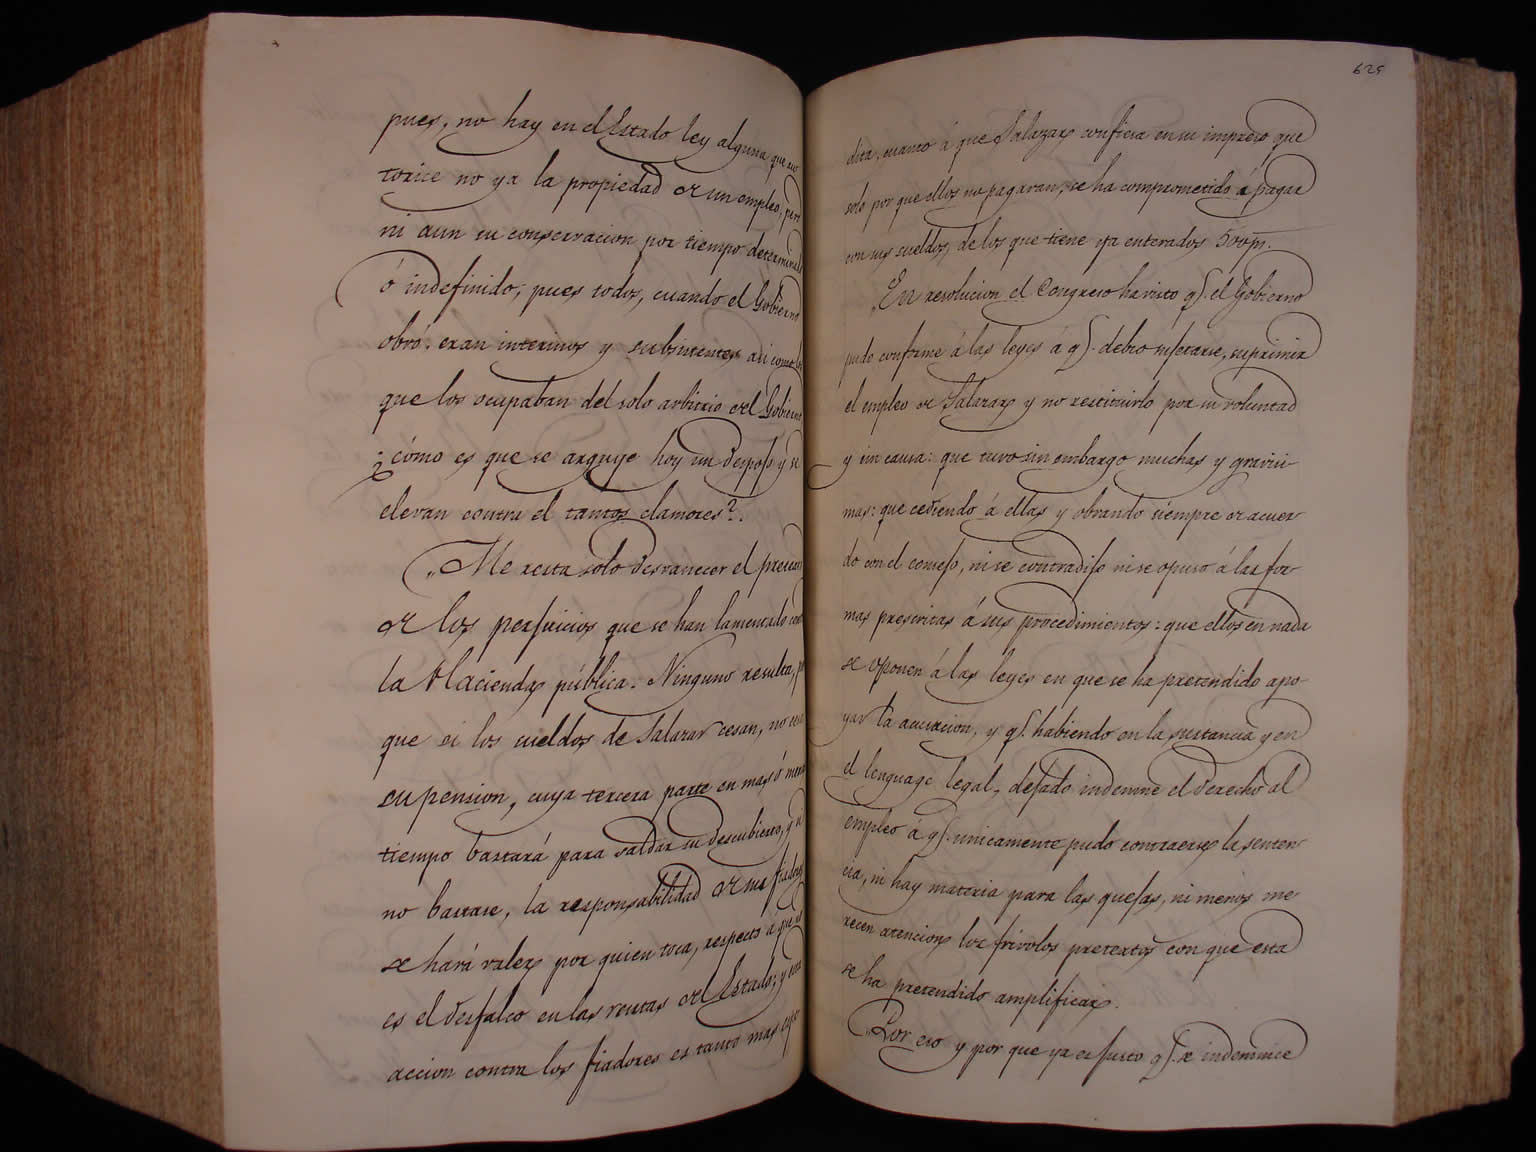 pues, no hay en el Estado ley alguna que au
torice no ya la propiedad de un empleo, pero
ni aun su conservacion por tiempo determinado
ó indefinido; pues todos, cuando el Gobierno
obró, eran interinos y subsistentes asi como los
que los ocupaban del solo arbitrio del Gobierno
¿cómo es que se arguye hoy un despojo y se
elevan contra el tantos clamores?.
„Me resta solo desvanecer el
de los perjuicios que se han lamentado
la Hacienda pública. Ninguno resulta,
que si los sueldos de Salazar cesan, no
su pension, cuya tercera parte en mas ó menos
tiempo bastará para saldar su descubierto, y si
no bastare, la responsabilidad de sus fiadores
se hará valer por quien toca, respecto á que
es el desfalco en las rentas del Estado; y
accion contra los fiadores es tanto mas
625
dita, cuanto á que Salazar confiesa en su impreso que
solo por que ellos no pagaran, se ha comprometido á pagar
con sus sueldos, de los que tiene ya enterados 500ps.
„En resolucion el Congreso ha visto q.e el Gobierno
pudo conforme á las leyes á q.e debio sujetarse, suprimir
el empleo de Salazar y no restituirlo por su voluntad
y sin causa: que tuvo sin embargo muchas y gravisi-
mas: que cediendo á ellas y obrando siempre de acuer
do con el consejo, ni se contradijo ni se opuso á las for
mas prescritas á sus procedimientos: que ellos en nada
se oponen á las leyes en que se ha pretendido apo-
yar la acusacion, y q.e habiendo en la sustancia y en
el lenguage legal, dejado indemne el derecho al
empleo á q.e unicamente pudo contraerse la senten
cia, ni hay materia para las quejas, ni menos me
recen atencion los frivolos pretextos con que esta
se ha pretendido amplificar.
„Por eso y por que ya es justo q.e se indemnice